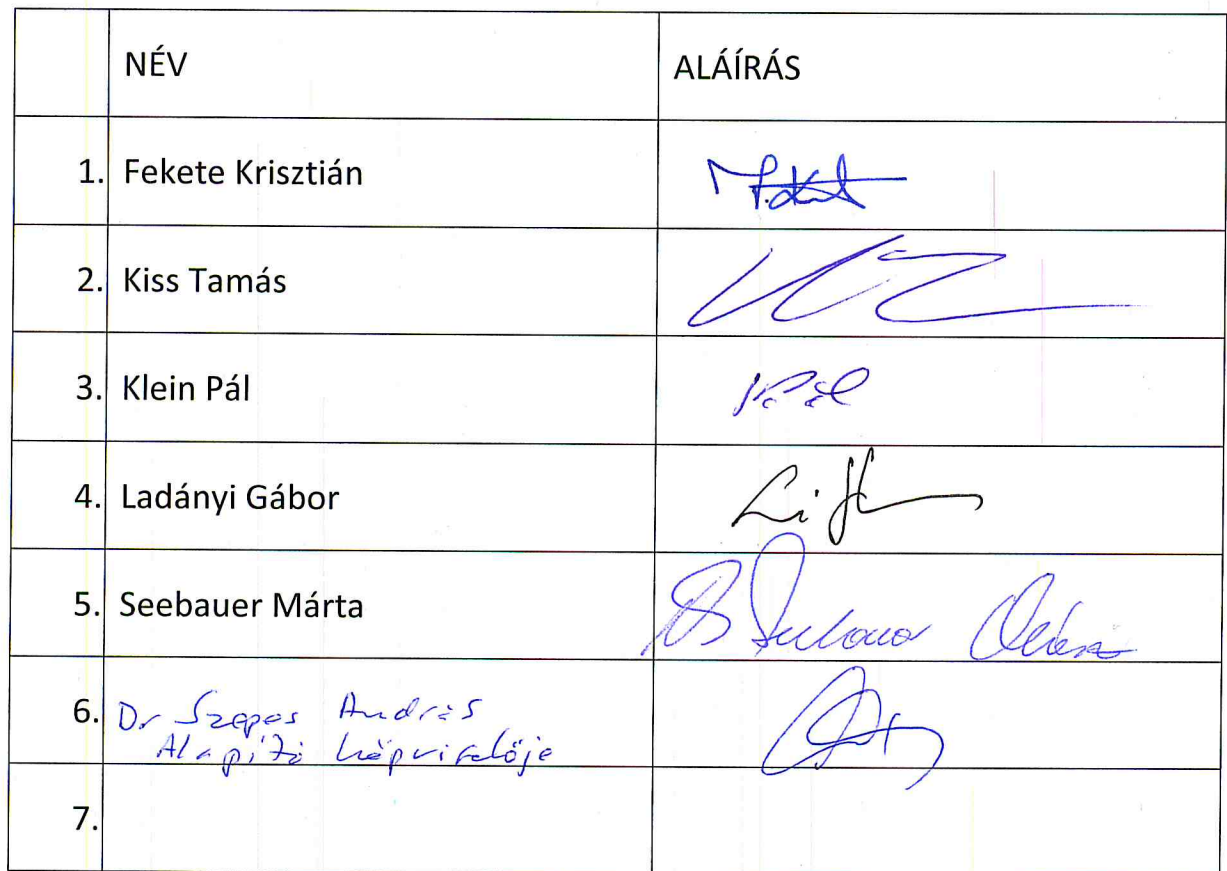 NÉV ALÁÍRÁS
1. Fekete Krisztián
2. Kiss Tamás
3. Klein Pál
4. Ladányi Gábor
5. Seebauer Márta
6. Dr Szepes András
Alapító képviselője
7.